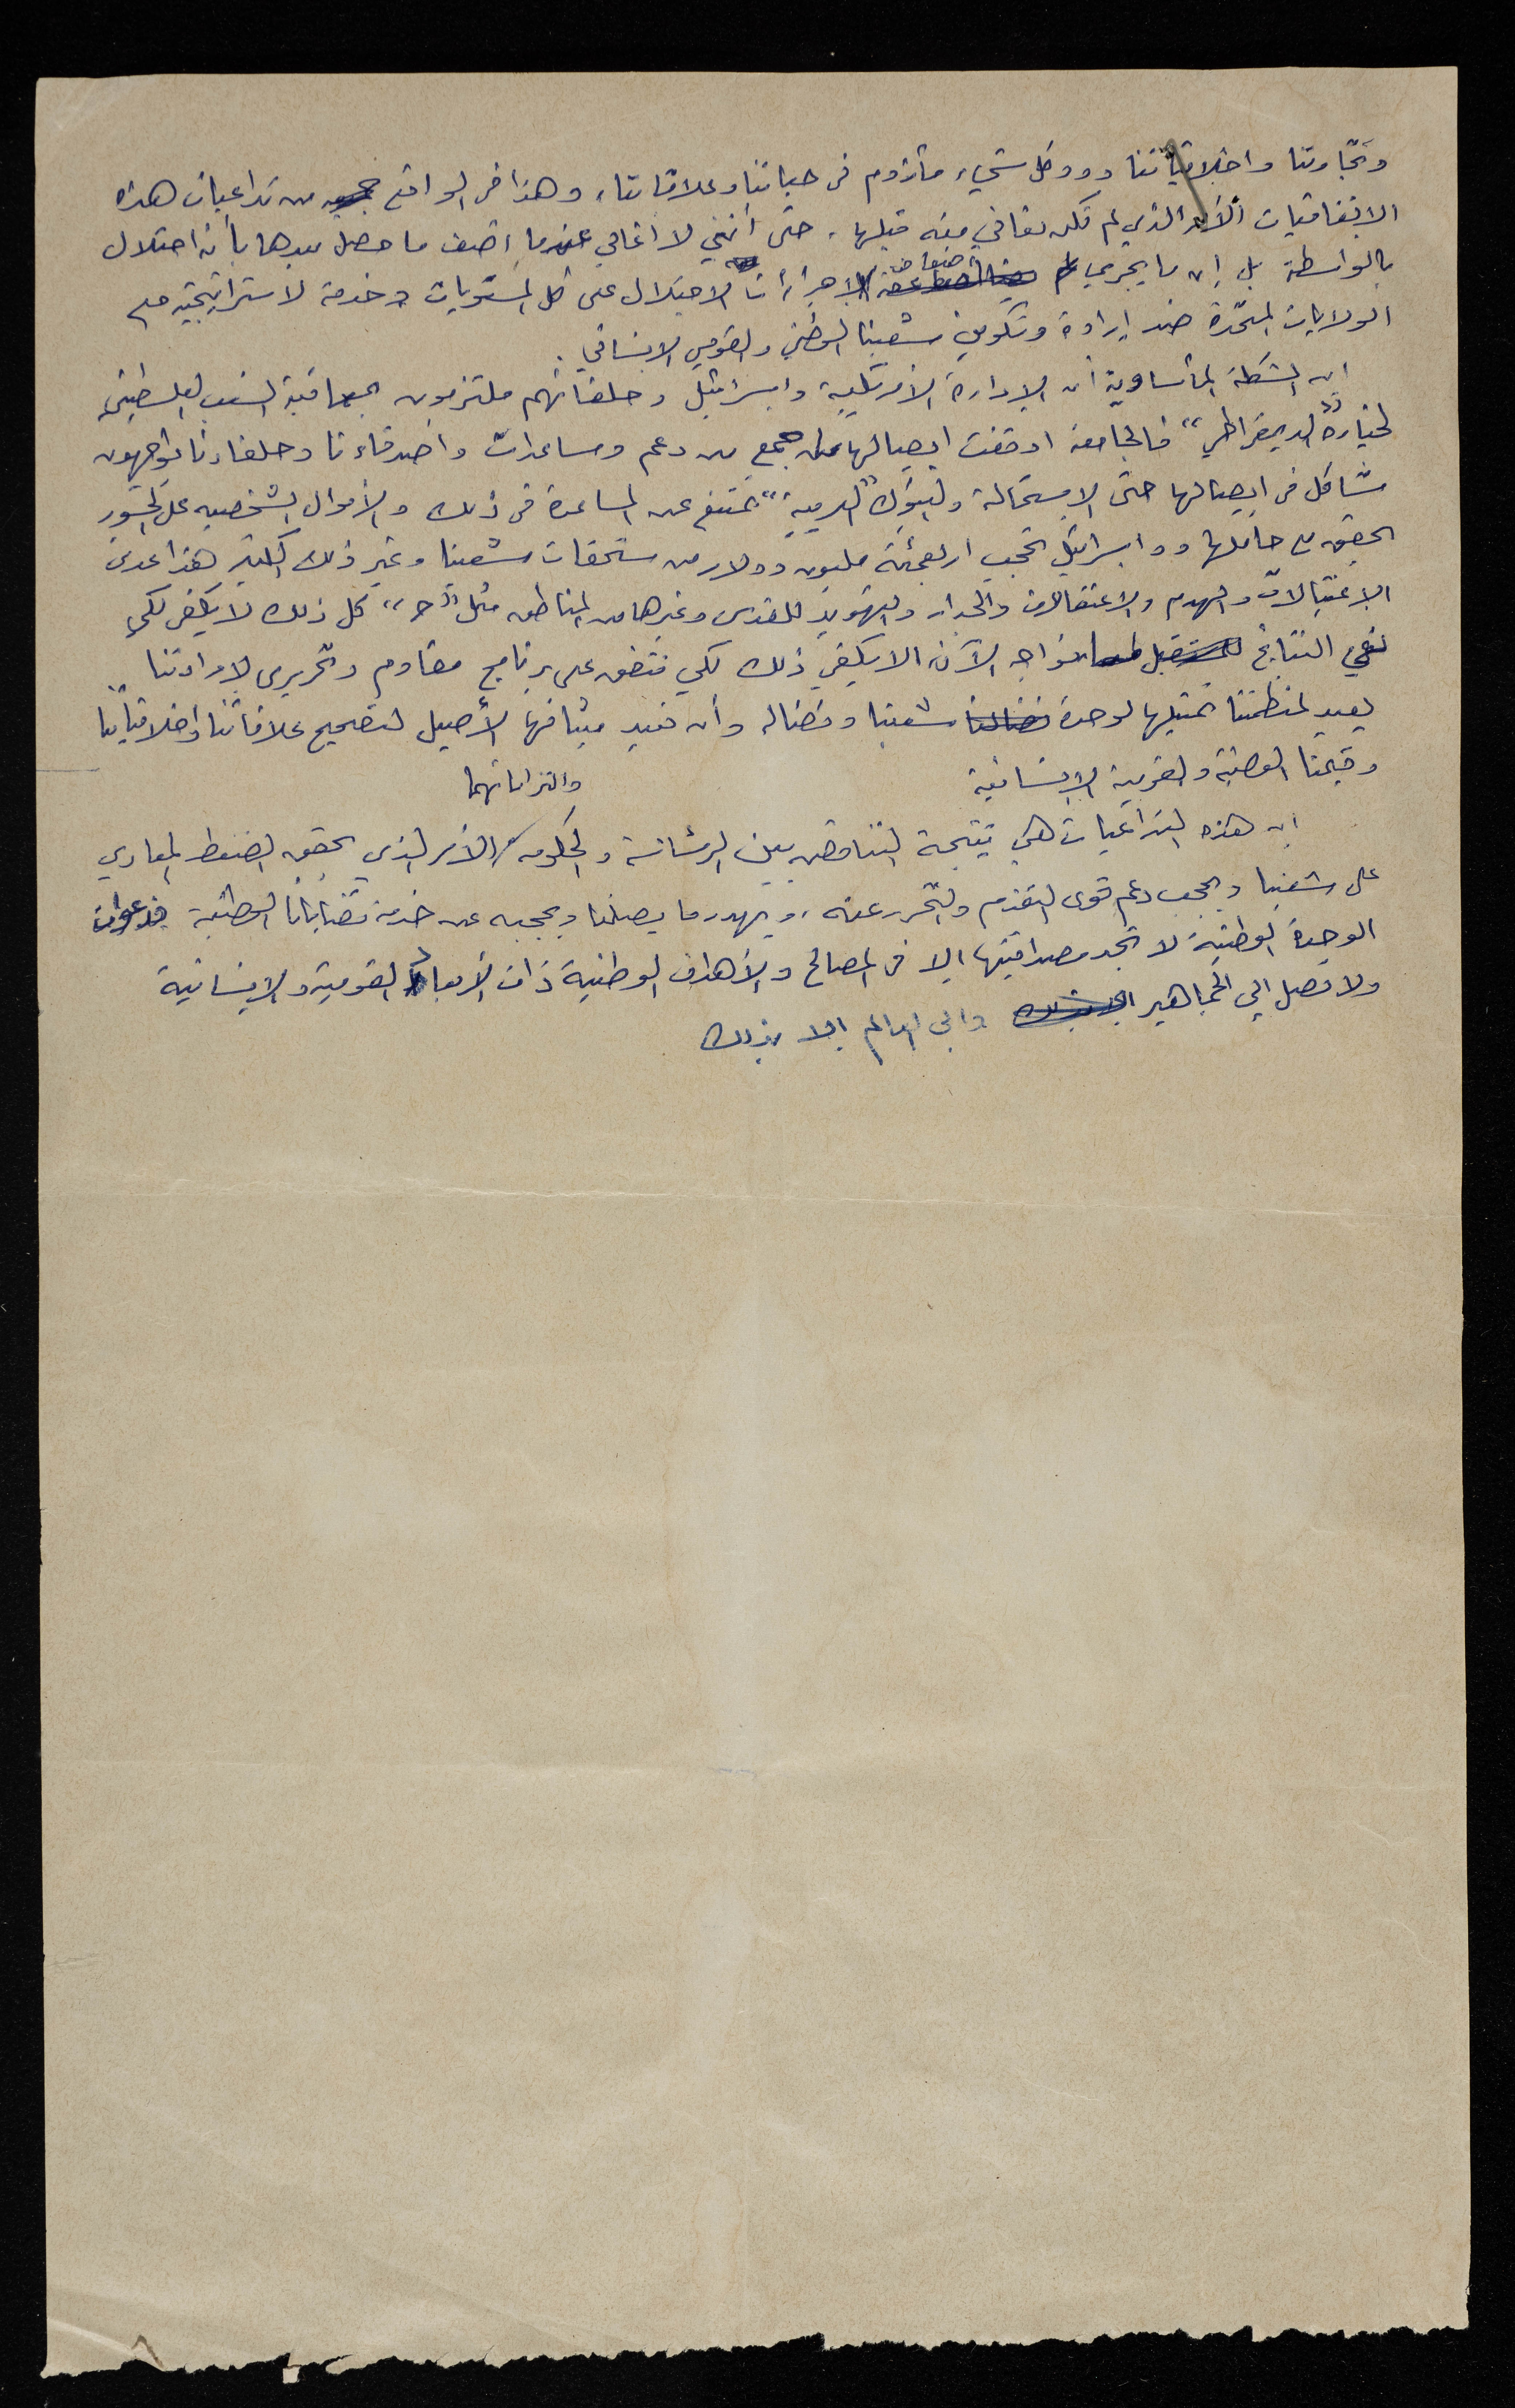 وتجارتنا واخلاقياتنا وو وكل شيء مأزوم في حياتنا وعلاقاتنا، وهذا في الواقع من تداعيات هذه
الاتفاقيات الأمر الذي لم نكن نعاني منه قبلها. حتى أنني لا اغالي عندما اصف ما حصل بعدها بأنه احتلال
بالواسطة بل إن ما يجري لاجراءات الاحتلال على كل المستويات وخدمة لاستراتيجية
الولايات المتحدة ضد إرادة وتكوين شعبنا الوطني والقومي الانساني.
ان المشكلة المأساوية أن الادارة الأمريكية واسرائيل وحلفائهم ملتزمون بمعاقبة الشعب الفلسطيني
لخياره "الديمقراطي" فالجامعة اوقفت ايصالها ما جمع من دعم ومساعدات واصدقاءنا وحلفاءنا يواجهون
مشاكل في ايصالها حتى الاستحالة والبنوك "العربية" تمتنع عن المساعدة في ذلك والأموال الشخصيه على الجسور
الحقوه مع حاملها وو اسرائيل تحجب اربعمئة مليون دولار من مستحقات شعبنا وغير ذلك الكثير هذا عدى
الاغتيالات والهدم والاعتقالات والجدار والتهويد للقدس وغيرها من المناطق مثل "ج" كل ذلك لا يكفي لكي
نعي النتائج لما نواجه الآن الا يكفي ذلك لكي نتفق على برنامج مقاوم وتحريري لارادتنا
يعيد لمنظمتنا تمثيلها لوحدة شعبنا ونضاله وأن نعيد ميثاقها الأصيل لتصحيح علاقاتنا واخلاقياتنا
وقيمنا الوطنية والقومية الانسانية
والتزاماتهما
ان هذه التداعيات هي نتيجة التناقض بين الرئاسة والحكومه الأمر الذي يحقق الضغط المعادي
على شعبنا ويحجب دعم قوى التقدم والتحرر عنه، ويهدر ما يصلنا ويحجبه عن خدمة قضايانا الوطنية فدعوات
الوحدة الوطنية لا تجد مصداقيتها إلا في المصالح والأهداف الوطنية ذات الأبعاد القومية والانسانية
ولا نصل الى الجماهير والى العالم إلا بذلك